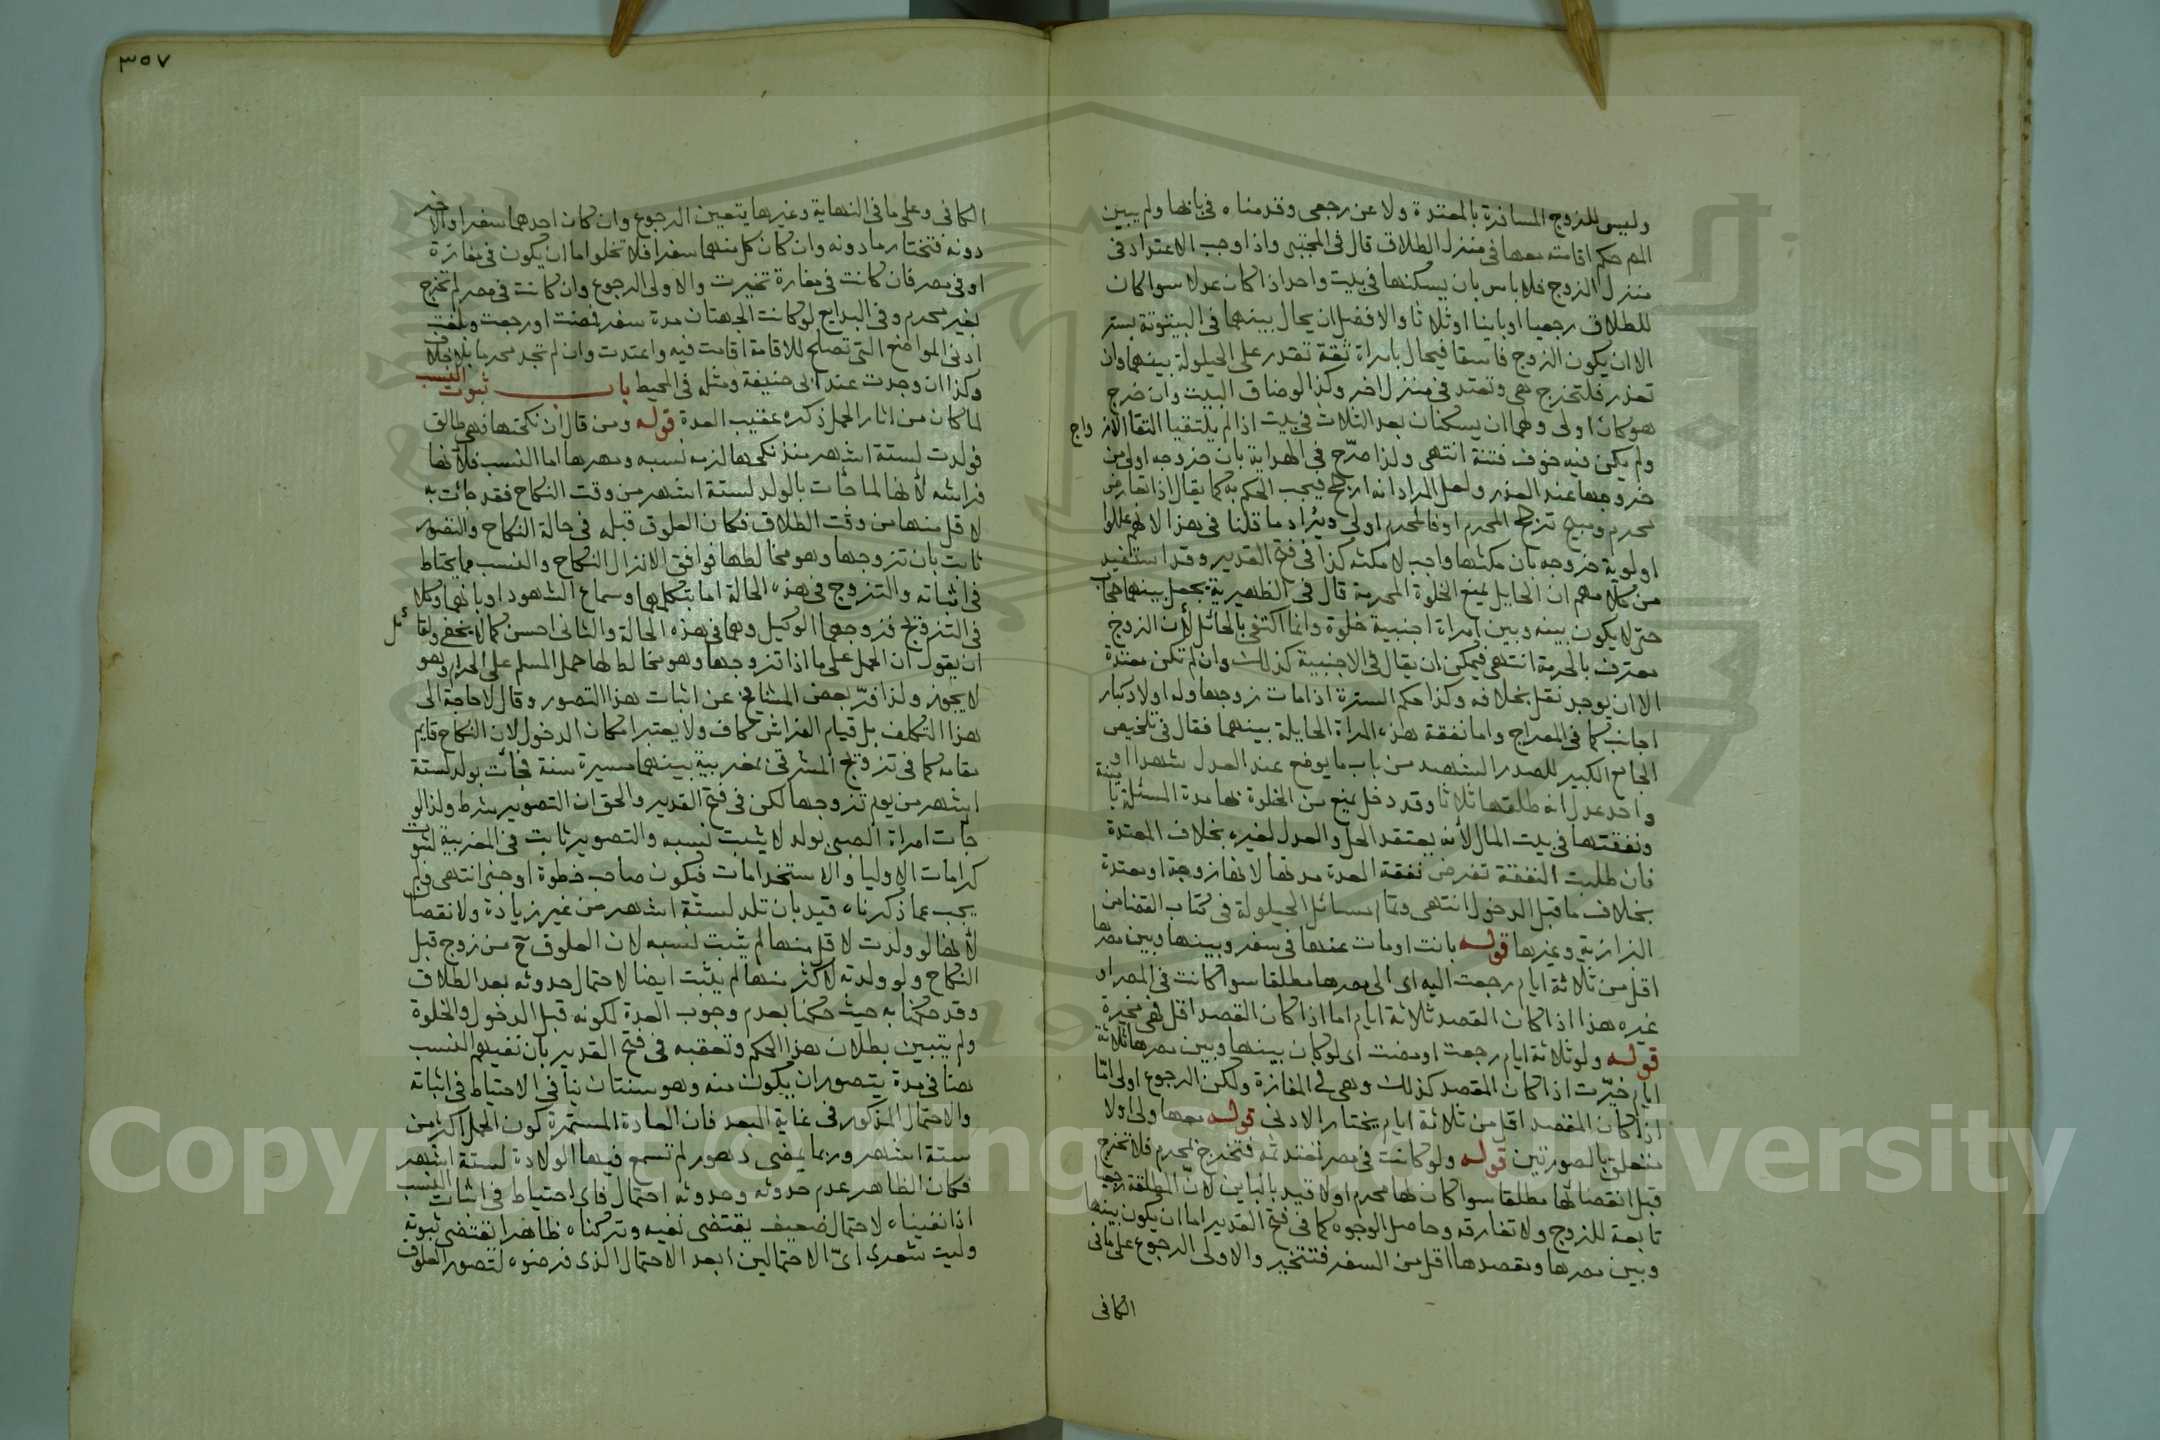 وليس للزوج المسافرة بالمعتدة ولا عن رجعي وقدمناه في بابها ولم يبين
المص حكم اقامته معها في منزل الطلاق قال في المجتبى واذا وجب الاعتداد في
منزل الزوج فلا باس بان يسكنها في بيت واحد اذا كان عدلا سوا كان
للطلاق رجعيا او باينا او ثلاثا والافضل ان يحال بينهما في البيتوتة بستر
الا ان يكون الزوج فاسقا فيحال بامراة ثقة تقدر على الحيلولة بينهما وان
تعذر فلتخرج هي وتعتد في منزل اخر وكذا لو ضاق البيت وان خرج
هو كان اولى ولهما ان يسكنان بعد الثلاث في بيت اذا لم يلتقيا التقا الاز واج
ولم يكن فيه خوف فتنة انتهى ولذا صرح في الهداية بان خروجه اولى من
خروجها عند العذر ولعل المراد انه ارجح فيجب الحكم به كما يقال اذا تعارض
محرم ومبيح ترجح المحرم او فالمحرم اولى ويراد ما قلنا في هذا لانهم عللوا
اولوية خروجه بان مكثها واجب لا مكثه كذا في فتح القدير وقد استفيد
من كلامهم ان الحايل يمنع الخلوة المحرمة قال في الظهيرية يجعل بينهما حجاب
حتى لا يكون بينه وبين امراة اجنبية خلوة وانما اكتفي بالحائل لان الزوج
معترف بالحرمة انتهى فيمكن ان يقال في الاجنبية كذلك وان لم تكن معتدة
الا ان يوجد نقل بخلافه وكذا حكم السترة اذا مات زوجها وله اولاد كبار
اجانب كما في المعراج واما نفقة هذه المراة الحايلة بينهما فقال في تلخيص
الجامع الكبير للصدر الشهيد من باب ما يوضع عند العدل شهدا او
واحد عدل انه طلقها ثلاثا وقد دخل يمنع من الخلوة بها مدة المسئلة با مينة
ونفقتها في بيت المال لانه يعتقد الحل والعدل لغيره بخلاف المعتدة
فان طلبت النفقة تفرض نفقة العدة مدتها لانها زوجة او معتدة
بخلاف ما قبل الدخول انتهى وتمام مسائل الحيلولة في كتاب القضا من
البزازية وغيرها قوله بانت او مات عنها في سفر وبينها وبين مصرها
اقل من ثلاثة ايام رجعت اليه اي الى مصرها مطلقا سوا كانت في المصر او
غيره هذا اذا كان المقصد ثلاثة ايام اما اذا كان القصد اقل فهي مخيرة
قوله ولو ثلاثة ايام رجعت او مضت اي لو كان بينها وبين مصرها ثلاثة
ايام خيرت اذا كان المقصد كذلك وهي في المفازة ولكن الرجوع اولى اما
اذا كان المقصد اقل من ثلاثة ايام يختار الادنى قوله معها ولي او لا
متعلق بالصورتين قوله ولو كانت في مصر تعتد ثمه فتخرج بمحرم فلا تخرج
قبل انقضائها مطلقا سوا كان لها محرم اولا قيد بالباين لان المطلقة رجعيا
تابعة للزوج ولا تفارقه وحاصل الوجوه كما في فتح القدير اما ان يكون بينها
وبين مصرها ومقصدها اقل من السفر فتتخير والاولى الرجوع على ما في
الكافي
٣٥٧
الكافي وعلى ما في النهاية وغيرها يتعين الرجوع وان كان احدهما سفرا والاخر
دونه فتختار ما دونه وان كان كل منهما سفرا فلا تخلو اما ان يكون في مفازة
او في مصر فان كانت في مفازة تخيرت والاولى الرجوع وان كانت في مصر لم تخرج
بغير محرم وفي البدايع لو كانت الجهتان مدة سفر فمضت او رجعت وبلغت
ادنى المواضع التي تصلح للاقامة اقامت فيه واعتدت وان لم تجد محرما بلا خلاف
وكذا ان وجدت عند ابي حنيفة ومثله في المحيط باب ثبوت النسب
لما كان من اثار الحمل ذكره عقيب العدة قوله ومن قال ان نكحتها فهي طالق
فولدت لستة اشهر منذ نكحها لزمه نسبه ومهرها اما النسب فلانها
فراشه لانها لما جات بالولد لستة اشهر من وقت النكاح فقد جات به
لاقل منها من وقت الطلاق فكان العلوق قبله في حالة النكاح والتصور
ثابت بان تزوجها وهو مخالطها فوافق الانزال النكاح والنسب مما يحتاط
في اثباته والتزوج في هذه الحالة اما بتكلمهما وسماع الشهود او بانهما وكلا
في التزويج فزوجهما الوكيل وهما في هذه الحالة والثاني احسن كما لا يخفى ولقائل
ان يقول ان الحمل على ما اذا تزوجها وهو مخالطها حمل المسلم على الحرام وهو
لا يجوز ولذا فر بعض المشايخ عن اثبات هذا التصور وقال لا حاجة الى
هذا التكلف بل قيام الفراش كاف ولا يعتبر امكان الدخول لان النكاح قايم
مقامه كما في تزويج المشرقي مغربية بينهما مسيرة سنة فجات بولد لستة
اشهر من يوم تزوجها لكن في فتح القدير والحق ان التصوير شرط ولذا لو
جات امراة الصبي بولد لا يثبت نسبه والتصوير ثابت في المغربية لثبوت
كرامات الاوليا والاستخدامات فيكون صاحب خطوة او جني انتهى ولم
يجب عما ذكرناه قيد بان تلد لستة اشهر من غير زيادة ولا نقصان
لانها لو ولدت لاقل منها لم يثبت نسبه لان العلوق ح من زوج قبل
النكاح ولو ولدته لاكثر منها لم يثبت ايضا لاحتمال حدوثه بعد الطلاق
وقد حكمنا به حيث حكمنا بعدم وجوب العدة لكونه قبل الدخول والخلوة
ولم يتبين بطلان هذا الحكم وتعقبه في فتح القدير بان نفيهم النسب
هنا في مدة يتصور ان يكون منه وهو سنتان ينافي الاحتياط في اثباته
والاحتمال المذكور في غاية البعد فان العادة المستمرة كون الحمل اكثر من
ستة اشهر وربما يمضي دهور لم تسمع فيها الولادة لستة اشهر
فكان الظاهر عدم حدوثه وحدوثه احتمال فاي احتياط في اثبات النسب
اذا نفيناه لاحتمال ضعيف يقتضي نفيه وتركناه ظاهرا يقتضي ثبوته
وليت شعري اي الاحتمالين ابعد الاحتمال الذي فرضوه لتصور العلوق
Copyright © King Saud University